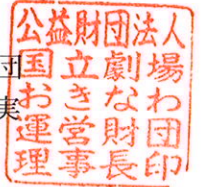 団
実
公益財団法人
国立劇場
おきなわ
運営財団
理事長印